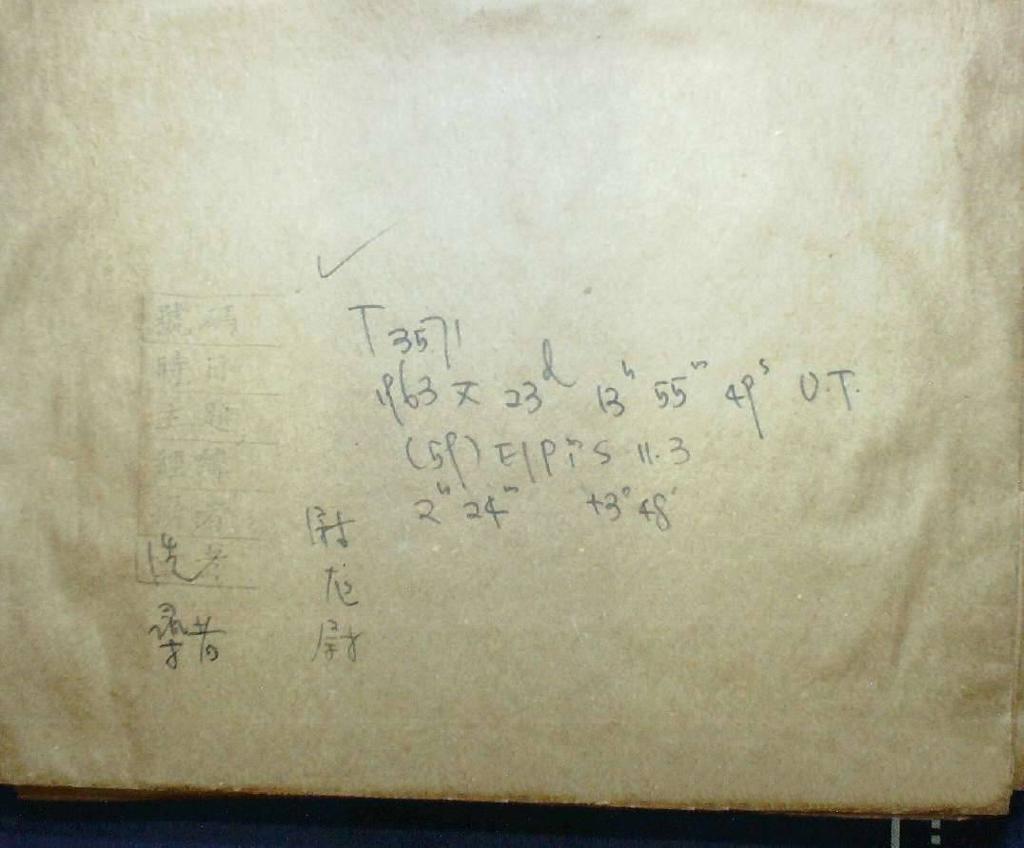 號碼
時日
主題
經緯
T 3571
1963 X 23ᵈ 13ʰ 55ᵐ 49ˢ U.T.
(59) Elpis 11.3
2ʰ 24ᵐ +3° 48′
洗者